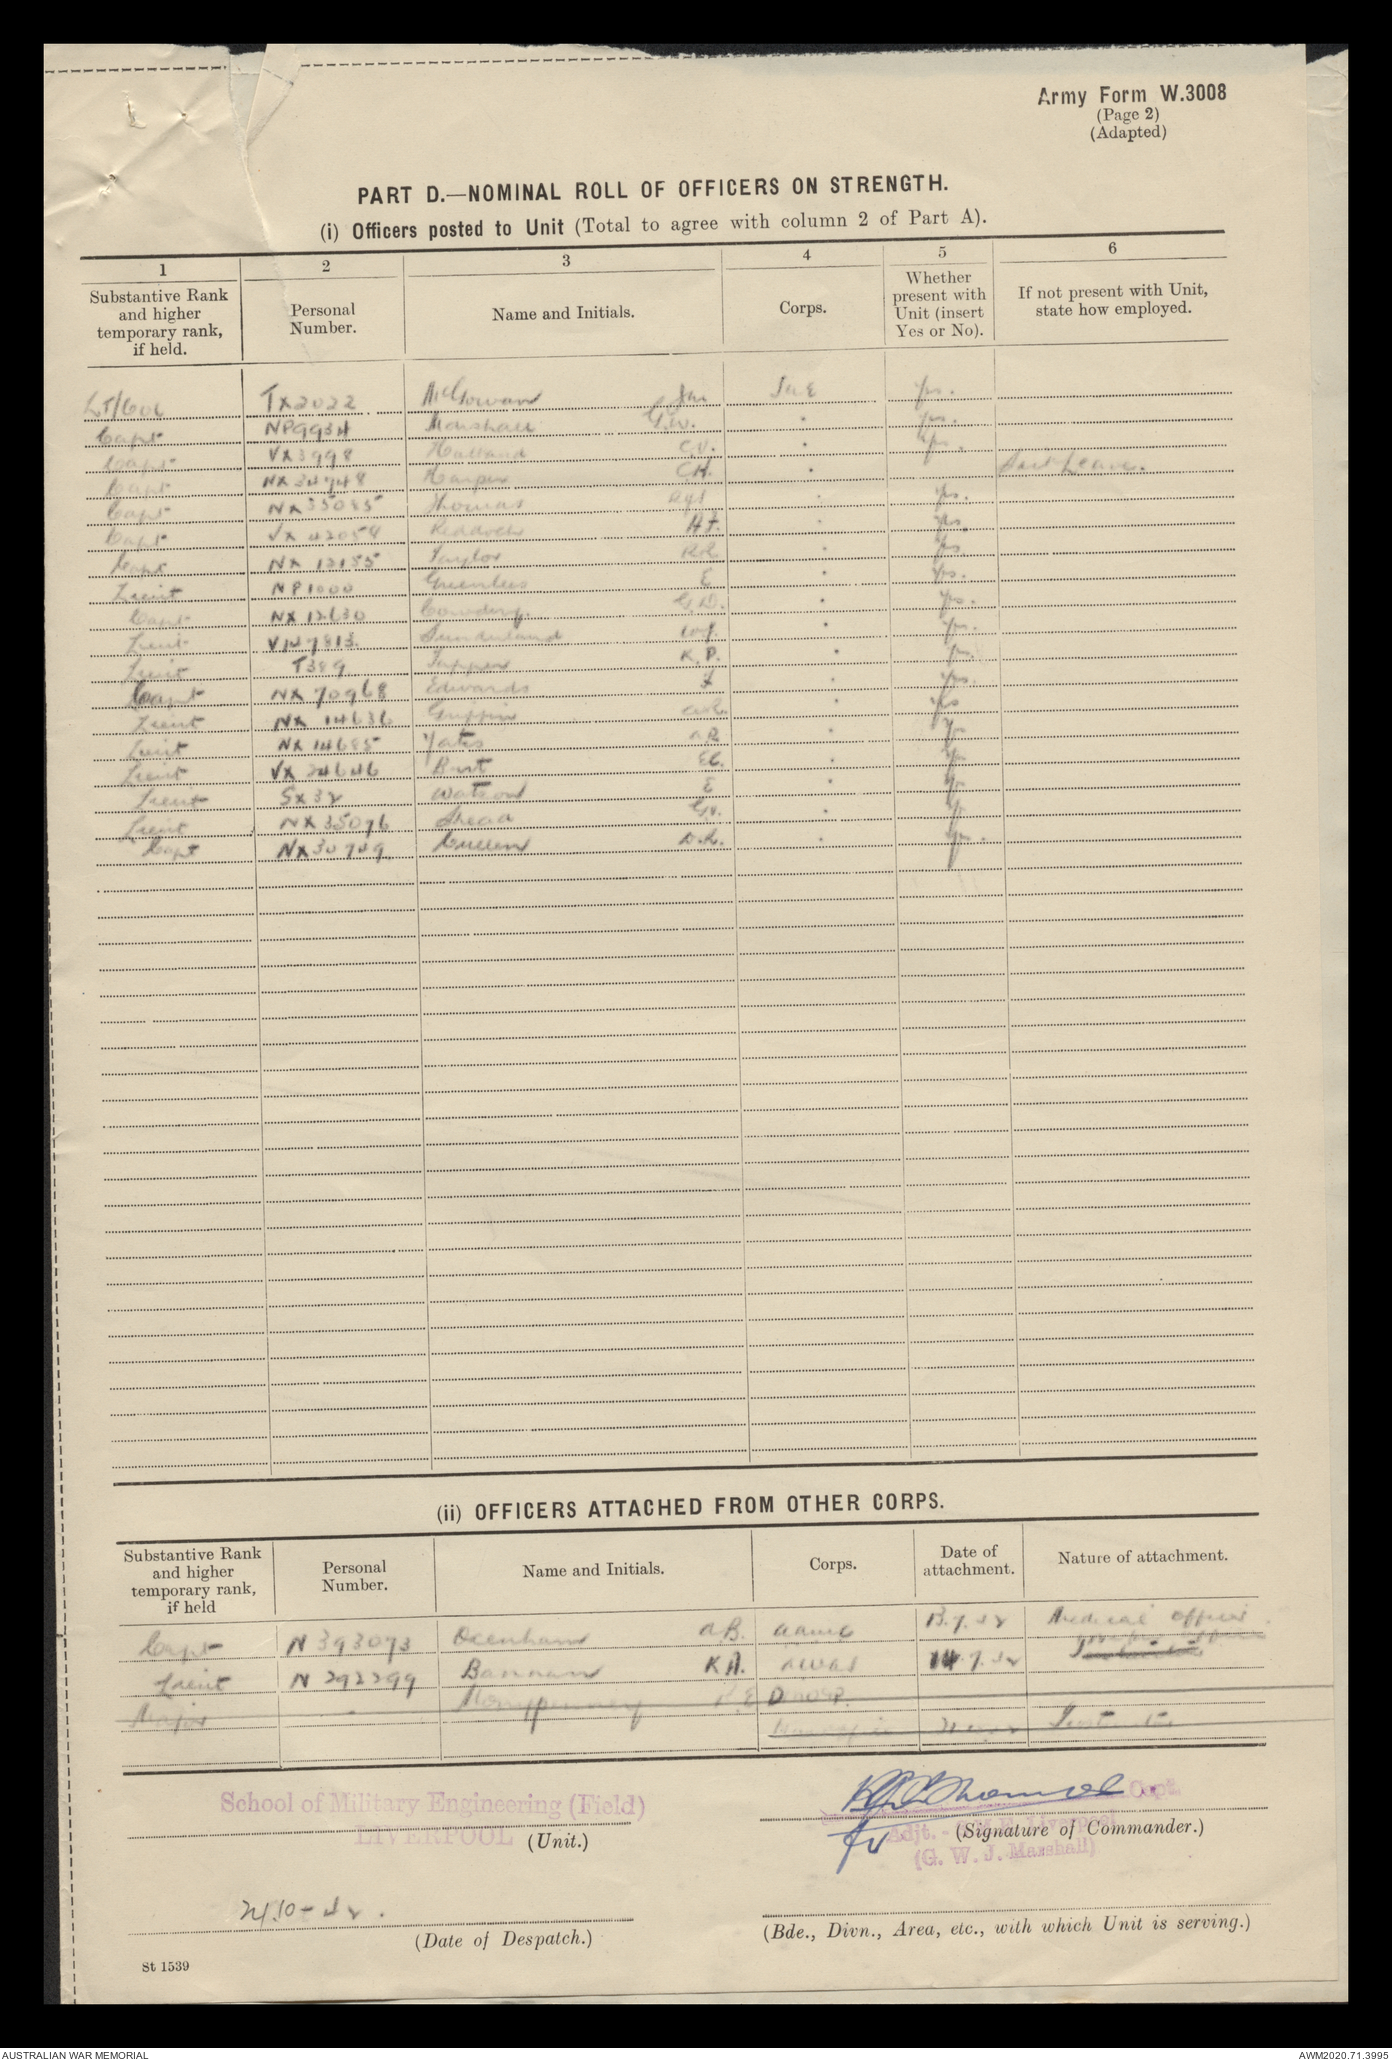 Army Form W.3008
(Page 2)
(Adapted)
PART D.—NOMINAL ROLL OF OFFICERS ON STRENGTH.
(i) Officers posted to Unit (Total to agree with column 2 of Part A).
1 2 3 4 5 6
Substantive Rank and higher temporary rank, if held. Personal Number. Name and Initials. Corps. Whether present with Unit (insert Yes or No). If not present with Unit, state how employed.
LT/Col TX2022 McGowan yes.
Capt NP9934 Marshall G.W. " yes.
Capt VX3998 Holland C.V. " yes.
Capt NX34748 Harper C.H. " Sick Leave.
Capt NX35085 Thomas " yes.
Capt VX42058 H.F. " yes.
Capt NX12155 Taylor " yes
Lieut NP1000 Greenlees E " yes.
Capt NX12630 Cowdery. G.D. " yes.
Lieut V147813 Sunderland " yes.
Lieut T389 K.P. " yes.
Capt NX70968 Edwards J " yes.
Lieut NX14636 Griffin " yes
Lieut NX14685 Yates A.R. " yes
Lieut VX24646 Burt E.C. " yes
Lieut SX32 Watson E " yes
Lieut NX35076 G.V. " yes
Capt NX30749 Cullen D.R. " yes.
(ii) OFFICERS ATTACHED FROM OTHER CORPS.
Substantive Rank and higher temporary rank, if held Personal Number. Name and Initials. Corps. Date of attachment. Nature of attachment.
Capt N393073 Oxenham A.B. AAMC 13.7.42 Medical Officer.
Lieut N292299 Bannan K.A. AWAS 14.7.42
Major Monypenny
School of Military Engineering (Field)
LIVERPOOL (Unit.)
Capt.
Adjt. - S.M.E. Liverpool (Signature of Commander.)
for (G. W. J. Marshall)
2/10-42.
(Date of Despatch.)
(Bde., Divn., Area, etc., with which Unit is serving.)
St 1539
AUSTRALIAN WAR MEMORIAL
AWM2020.71.3995